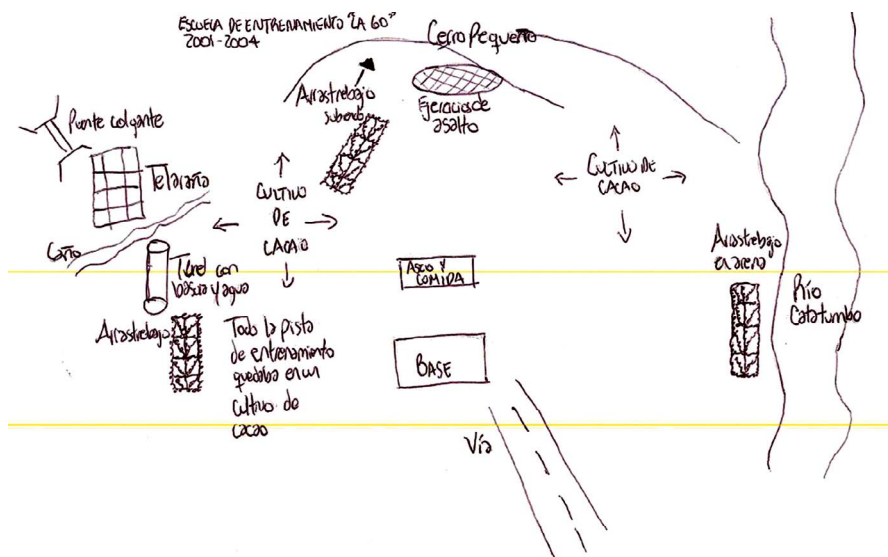 ESCUELA DE ENTRENAMIENTO "LA 60"
2001-2004
Cerro Pequeño
Arrastrebajo
subiendo
Ejercicios de
asalto
Puente colgante
Telaraña
CULTIVO
DE
CACAO
CULTIVO DE
CACAO
Caño
Túnel con
basura y agua
ASEO Y
COMIDA
Arrastrebajo
en arena
Río
Catatumbo
Arrastrebajo
Toda la pista
de entrenamiento
quedaba en un
cultivo de
cacao
BASE
Vía